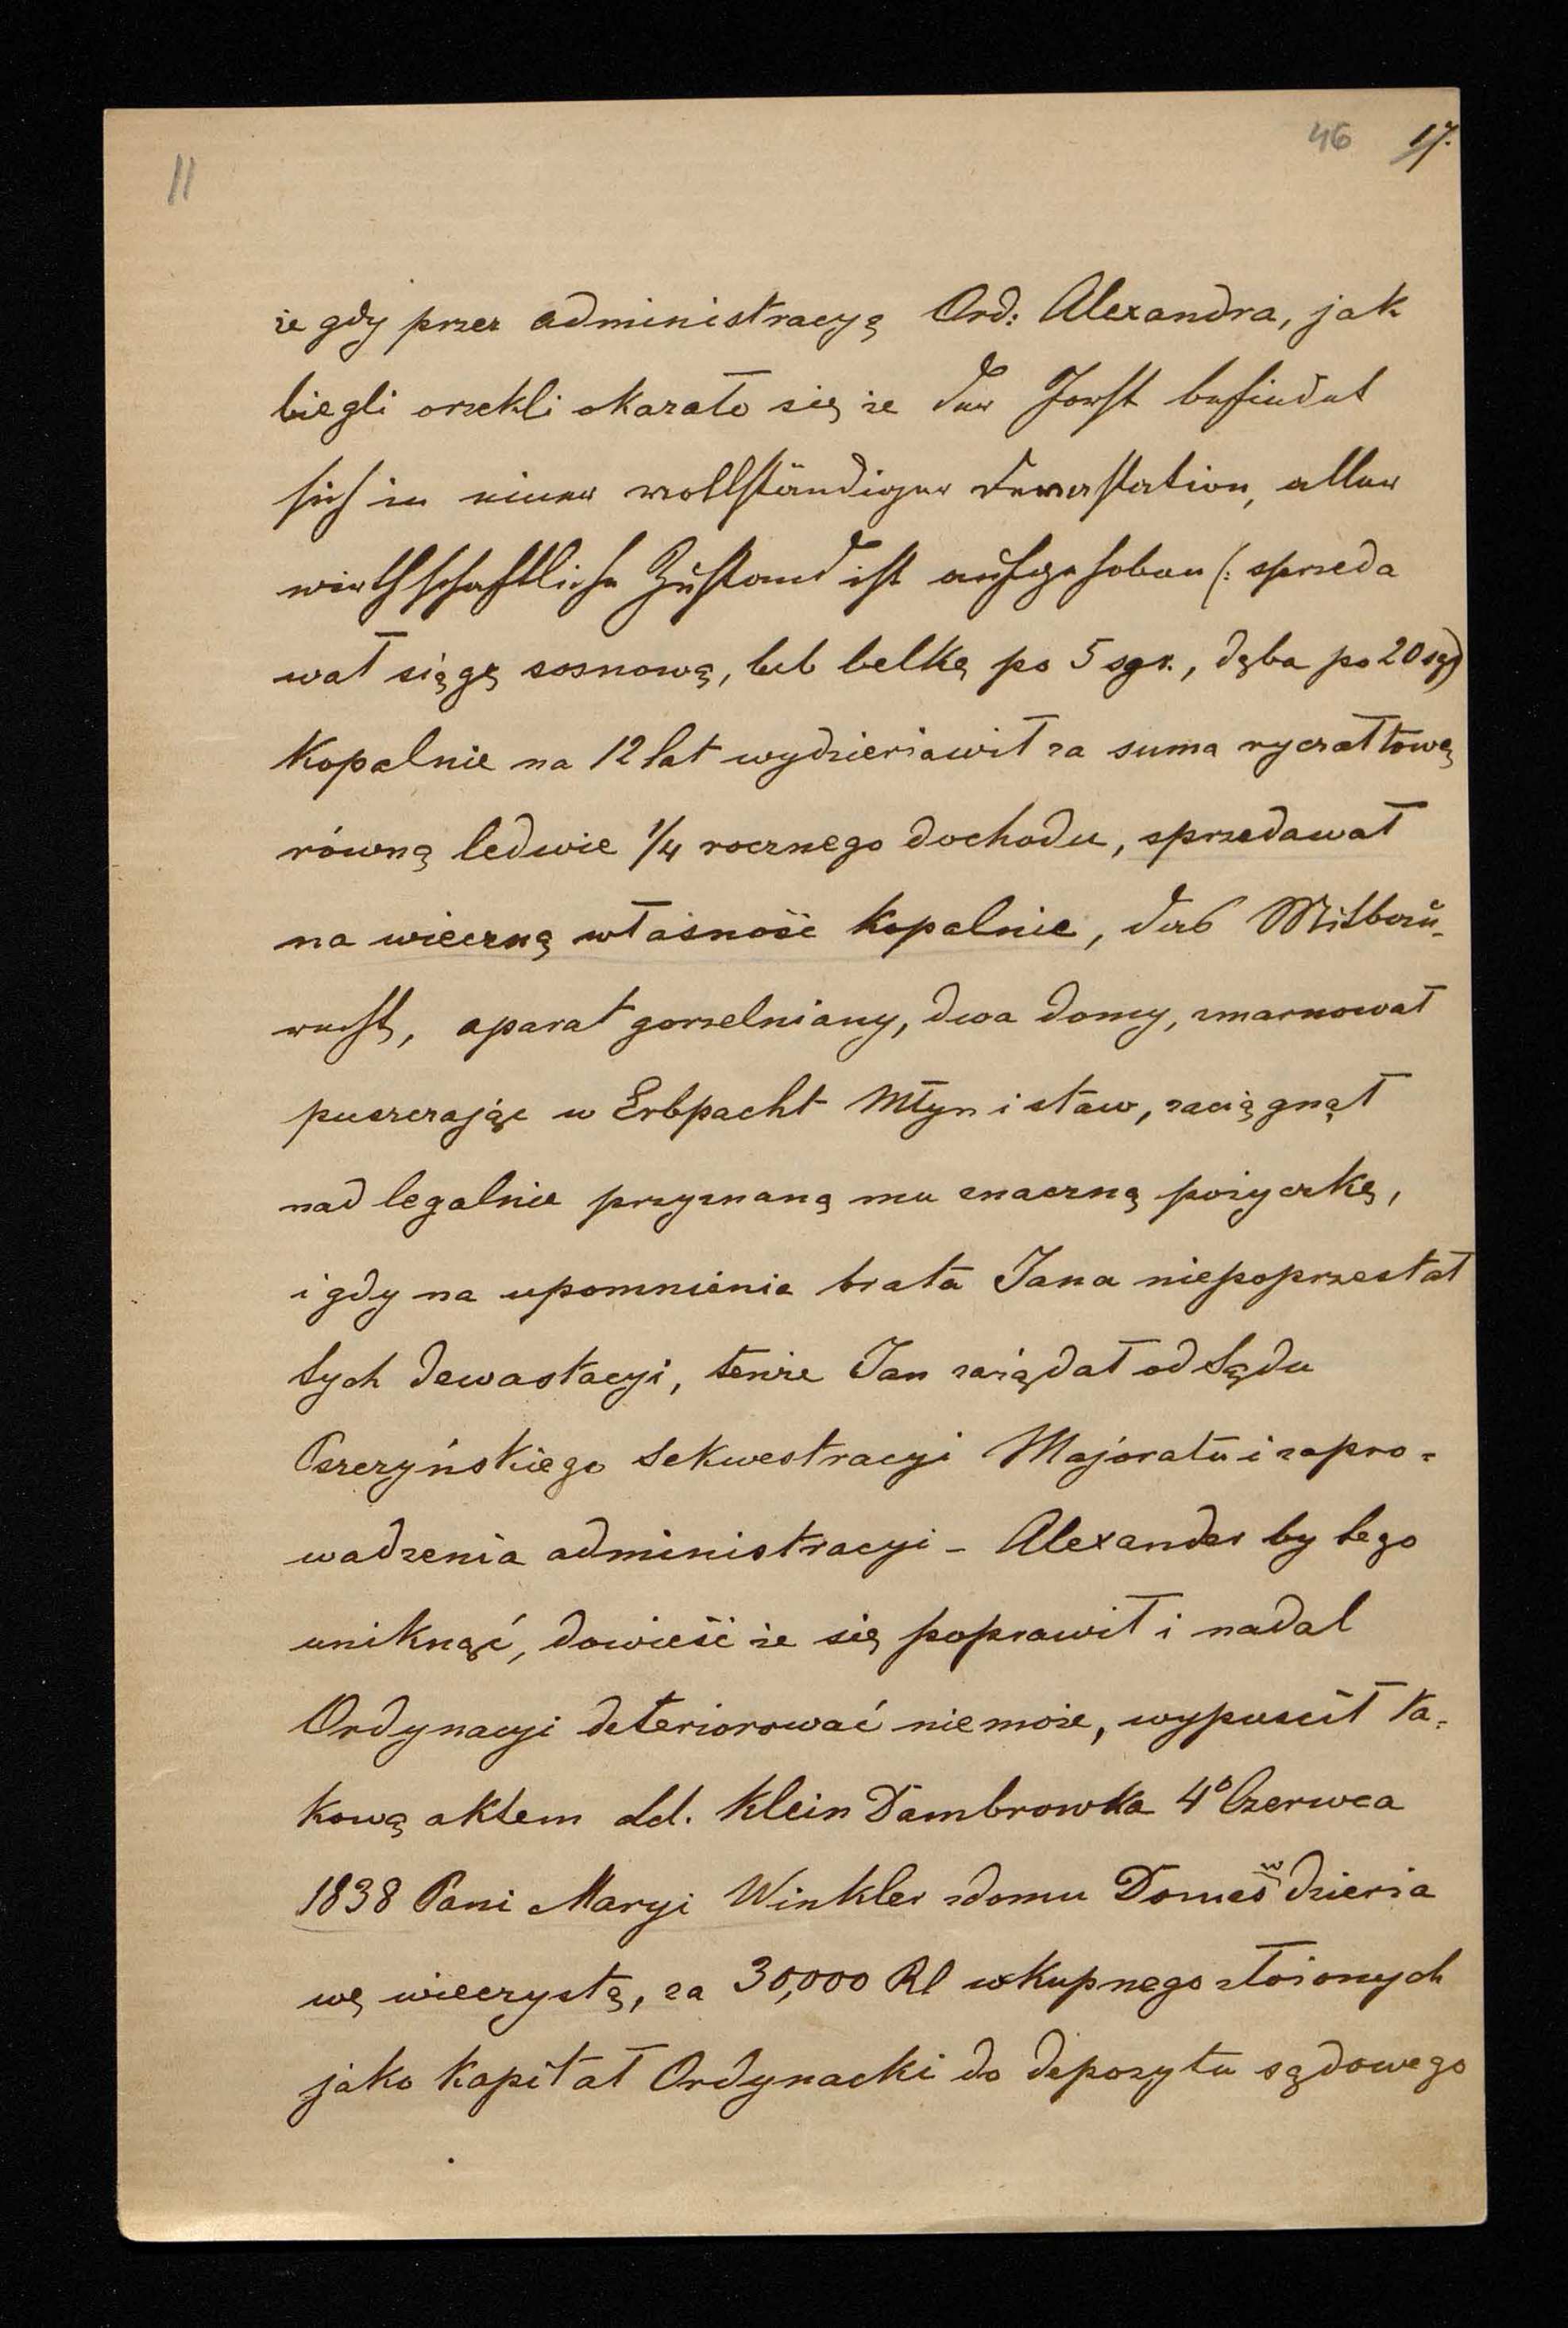 46 17.
11
że gdy przez administracyą Ord: Alexandra, jak
biegli orzekli okazało się że der Forst befindet
sich in einer vollständiger Devastation, aller
wirthschaftliche Zustand ist aufgehoben (: sprzeda
wał siągę sosnową, lub belkę po 5 sgr., dęba po 20 sgr)
Kopalnie na 12 lat wydzierżawił za suma ryczałtową
równą ledwie 1/4 rocznego dochodu, sprzedawał
na wieczną własność kopalnie, das Mitbau-
recht, aparat gorzelniany, dwa domy, zmarnował
puszczając w Erbpacht Młyn i staw, zaciągnął
nad legalnie przyznaną mu znaczną pożyczkę,
i gdy na upomnienie brata Jana niepoprzestał
tych dewastacyi, tenże Jan zażądał od Sądu
Pszczyńskiego Sekwestracyi Majoratu i zapro-
wadzenia administracyi – Alexander by tego
uniknąć, dowieść że się poprawił i nadal
Ordynacyi deteriorować niemoże, wypuścił ta-
kową aktem dd. Klein Dambrowka 4º Czerwca
1838 Pani Maryi Winkler zdomu Domes w dzierża
wę wieczystą, za 30,000 Rl wkupnego złożonych
jako kapitał Ordynacki do depozytu sądowego